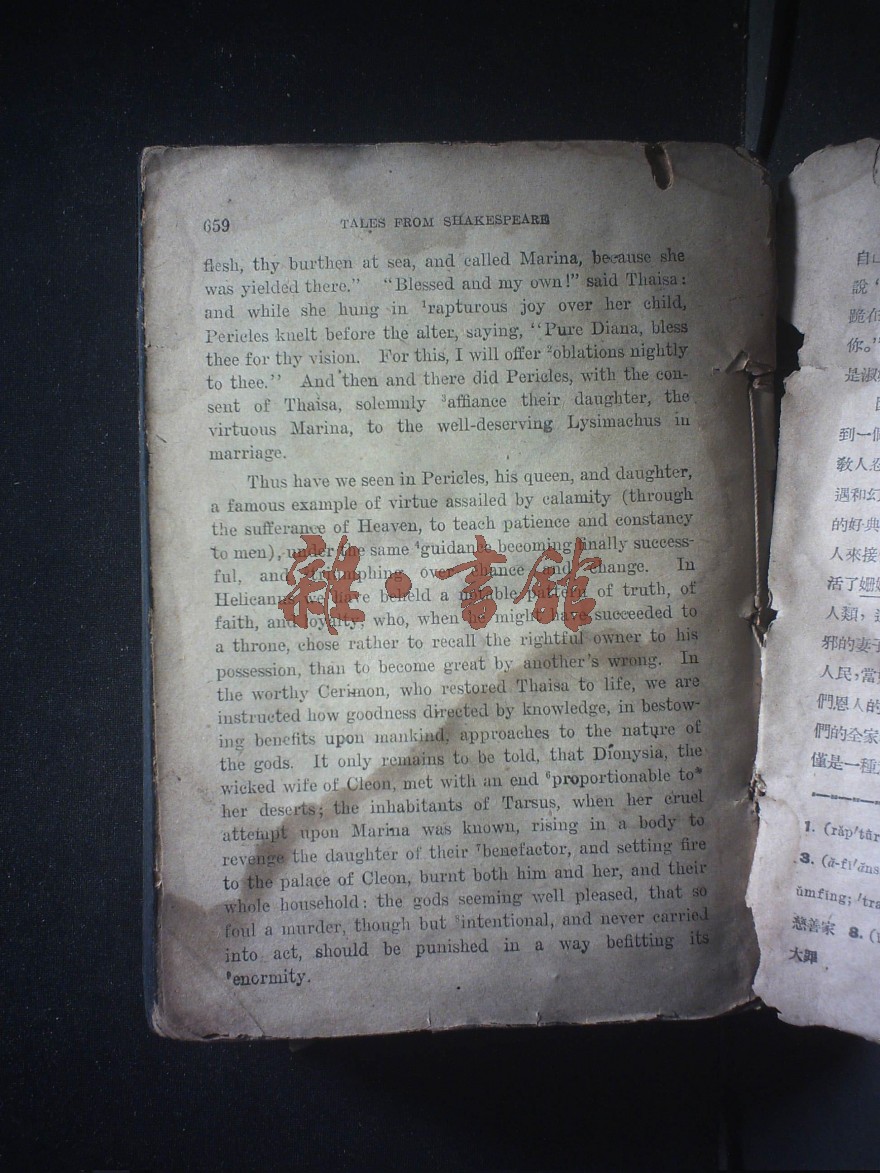 659 TALES FROM SHAKESPEARE
flesh, thy burthen at sea, and called Marina, because she
was yielded there." "Blessed and my own!" said Thaisa:
and while she hung in ¹rapturous joy over her child,
Pericles knelt before the alter, saying, "Pure Diana, bless
thee for thy vision. For this, I will offer ²oblations nightly
to thee." And then and there did Pericles, with the con-
sent of Thaisa, solemnly ³affiance their daughter, the
virtuous Marina, to the well-deserving Lysimachus in
marriage.
Thus have we seen in Pericles, his queen, and daughter,
a famous example of virtue assailed by calamity (through
the sufferance of Heaven, to teach patience and constancy
to men), under the same ⁴guidance becoming finally success-
ful, and triumphing over chance and change. In
Helicanus we have beheld a notable pattern of truth, of
faith, and loyalty, who, when he might have succeeded to
a throne, chose rather to recall the rightful owner to his
possession, than to become great by another's wrong. In
the worthy Cerimon, who restored Thaisa to life, we are
instructed how goodness directed by knowledge, in bestow-
ing benefits upon mankind, approaches to the nature of
the gods. It only remains to be told, that Dionysia, the
wicked wife of Cleon, met with an end ⁶proportionable to
her deserts; the inhabitants of Tarsus, when her cruel
attempt upon Marina was known, rising in a body to
revenge the daughter of their ⁷benefactor, and setting fire
to the palace of Cleon, burnt both him and her, and their
whole household: the gods seeming well pleased, that so
foul a murder, though but ⁸intentional, and never carried
into act, should be punished in a way befitting its
⁹enormity.
雜·書館
自山
說
跪在
你。"
是淑
到一個
教人忍
遇和幻
的好典
人來接
活了姗
人類,
邪的妻子
人民,當
們恩人的
們的全家
僅是一種
1. (răp′tūr
3. (ă-fī′ăns
ŭmfing;
慈善家 8.
大罪